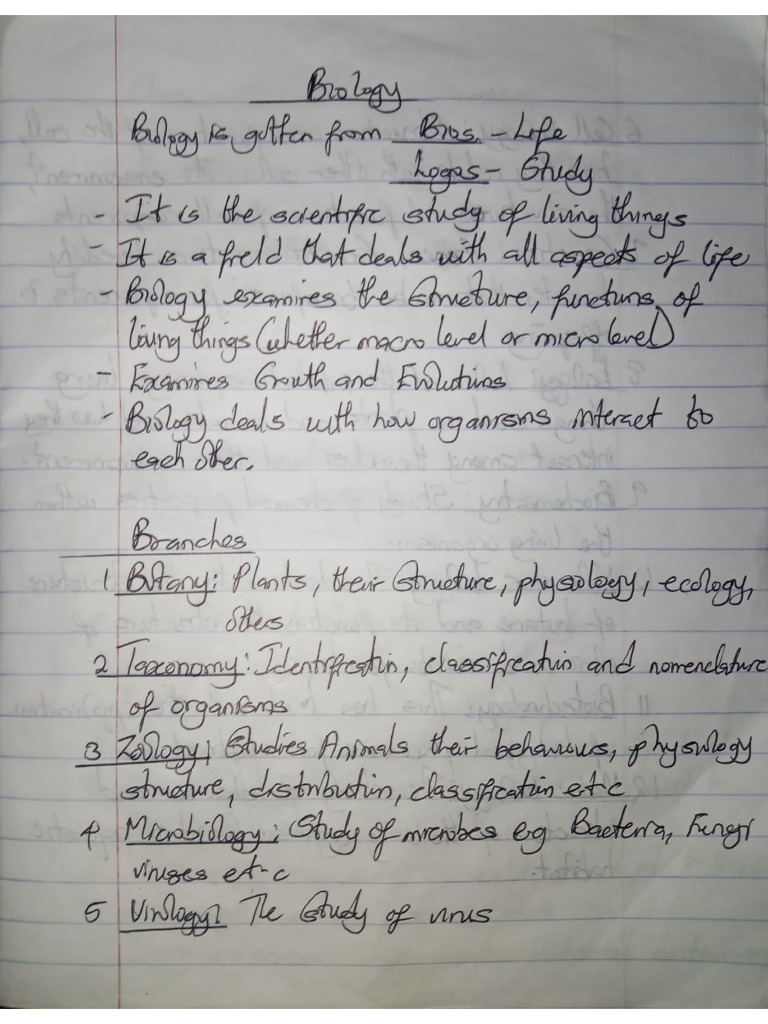 Biology
Biology is gotten from Bios - Life
Logos - Study
- It is the scientific study of living things
- It is a field that deals with all aspects of life
- Biology examines the structure, functions of
living things (whether macro level or micro level)
- Examines Growth and Evolutions
- Biology deals with how organisms interact to
each other.
Branches
1 Botany: Plants, their structure, physiology, ecology,
others
2 Taxonomy: Identification, classification and nomenclature
of organisms
3 Zoology; Studies Animals their behaviours, physiology
structure, distribution, classification et-c
4 Microbiology; Study of microbes eg Bacteria, Fungi
viruses et-c
5 Virology: The Study of virus